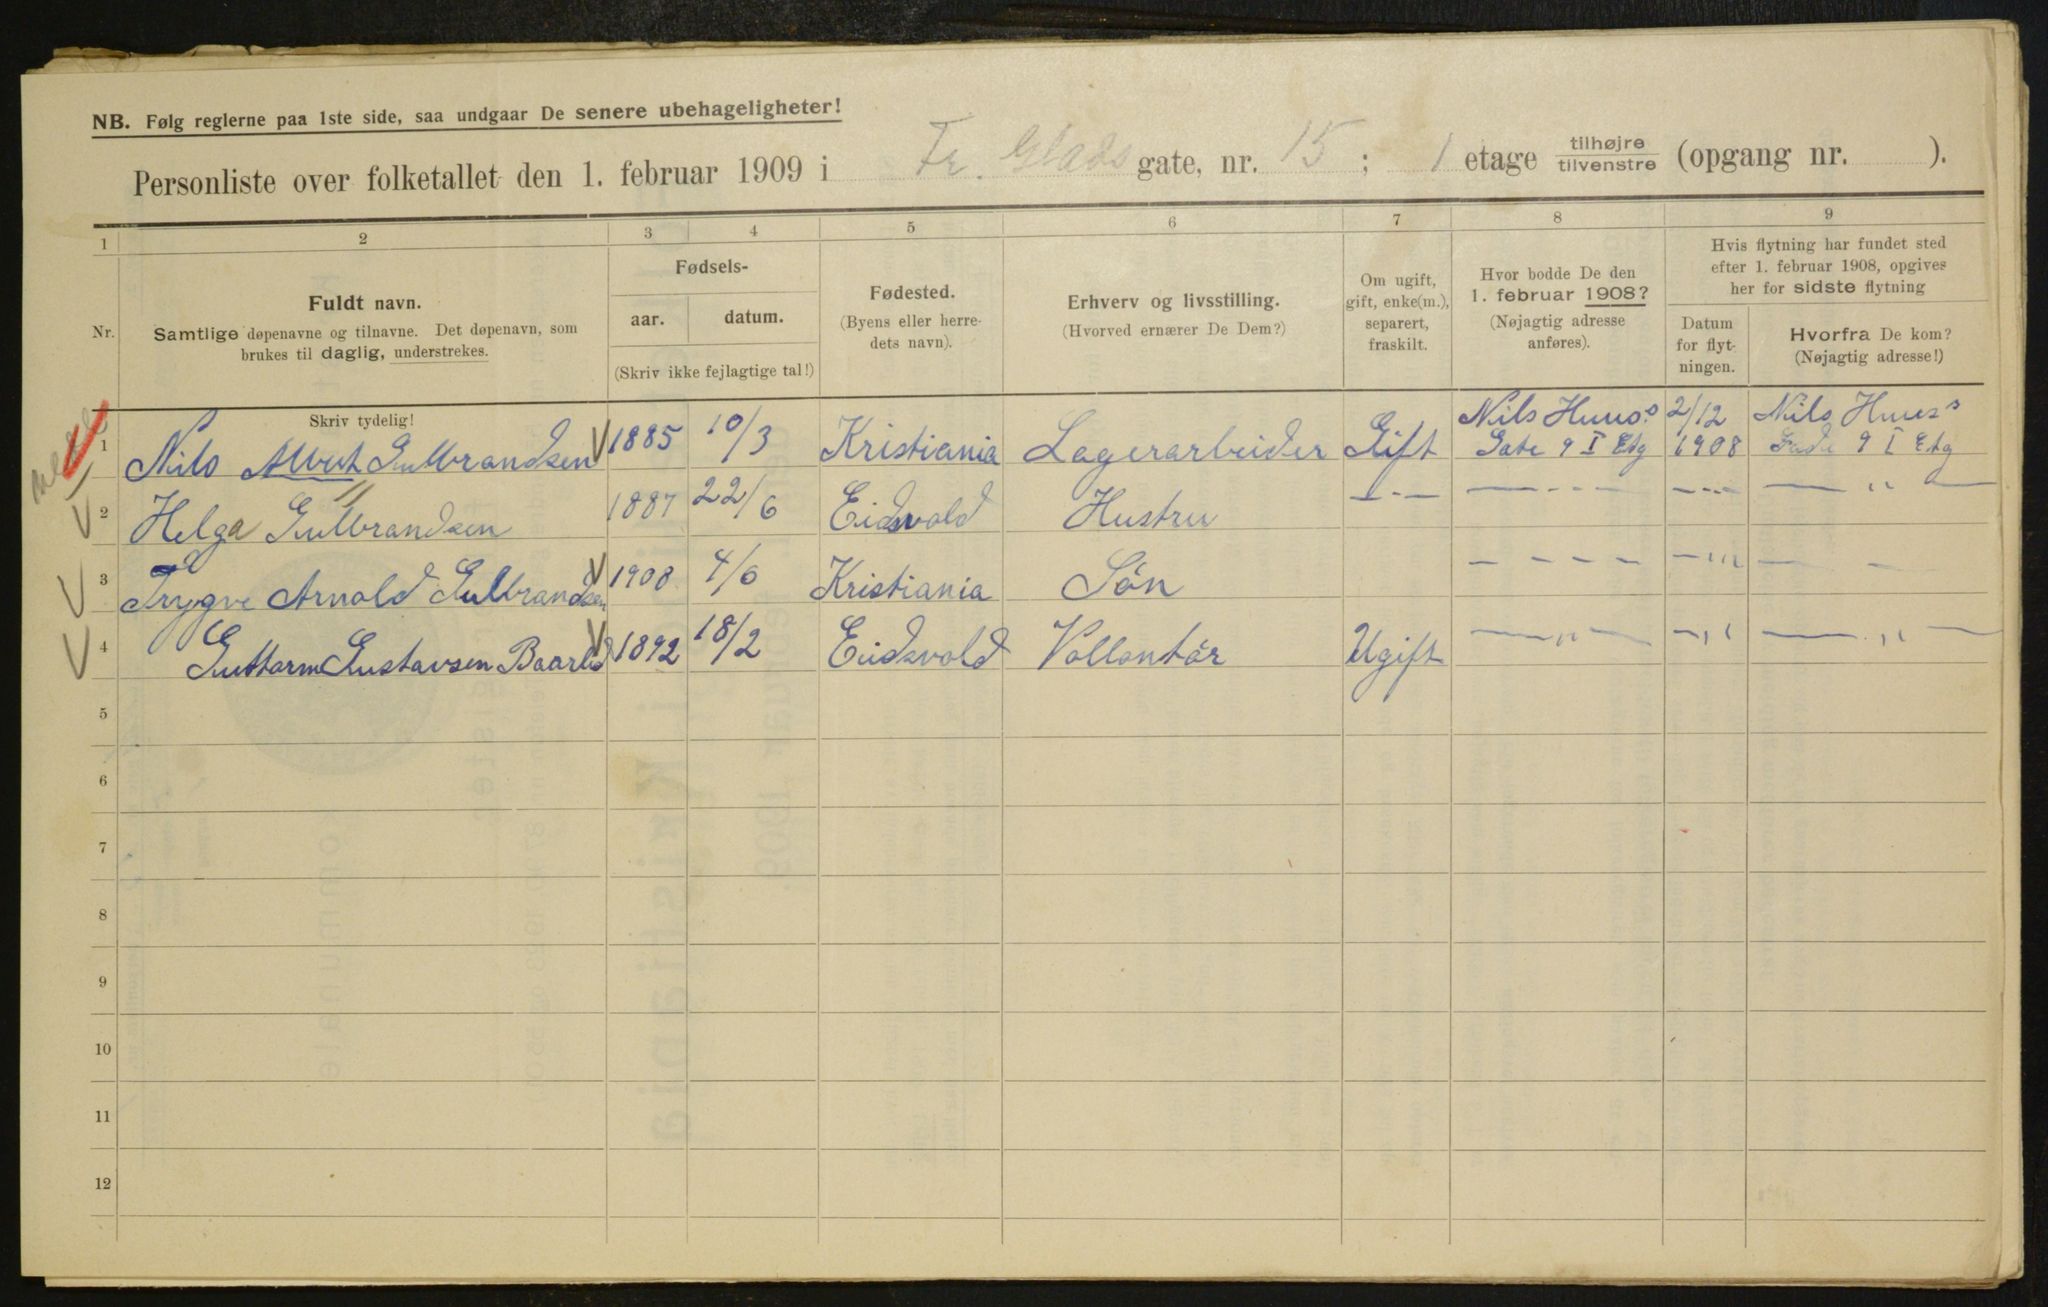 NB. Følg reglerne paa 1ste side, saa undgaar De senere ubehageligheter!
Personliste over folketallet den 1. februar 1909 i Fr. Glads gate, nr. 15 ; 1 etage tilhøjre tilvenstre (opgang nr. ).
1 2 3 4 5 6 7 8 9
Nr.
Fuldt navn.
Samtlige døpenavne og tilnavne. Det døpenavn, som
brukes til daglig, understrekes.
Skriv tydelig!
Fødsels-
aar. datum.
(Skriv ikke fejlagtige tal!)
Fødested.
(Byens eller herre-
dets navn).
Erhverv og livsstilling.
(Hvorved ernærer De Dem?)
Om ugift,
gift, enke(m.),
separert,
fraskilt.
Hvor bodde De den
1. februar 1908?
(Nøjagtig adresse
anføres).
Hvis flytning har fundet sted
efter 1. februar 1908, opgives
her for sidste flytning
Datum
for flyt-
ningen.
Hvorfra De kom?
(Nøjagtig adresse!)
1 Nils Albert Gulbrandsen 1885 10/3 Kristiania Lagerarbeider Gift Nils Huus's Gate 9 I Etg 2/12 1908 Nils Huus's Gade 9 I Etg
2 Helga Gulbrandsen 1887 22/6 Eidsvold Hustru — - - — - - - — - - — „ —
3 Trygve Arnold Gulbrandsen 1908 4/6 Kristiania Søn - - - - - „ - -
4 Guttorm Gustavsen Baarlid 1892 18/2 Eidsvold Vollontør Ugift — „ — - „ — „ —
5
6
7
8
9
10
11
12